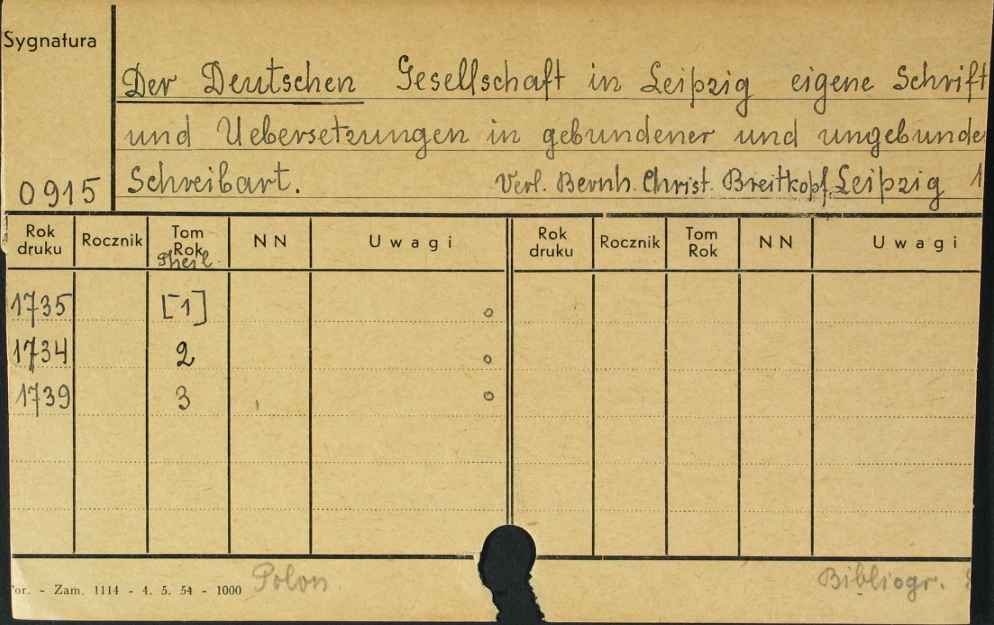 Sygnatura
Der Deutschen Gesellschaft in Leipzig eigene Schrift
und Uebersetzungen in gebundener und ungebunde
0915 Schreibart. Verl. Bernh. Christ. Breitkopf, Leipzig 1
Rok druku Rocznik Tom Rok Theil NN Uwagi Rok druku Rocznik Tom Rok NN Uwagi
1735 [1] o
1734 2 o
1739 3 o
or. - Zam. 1114 - 4. 5. 54 - 1000 Polon Bibliogr.